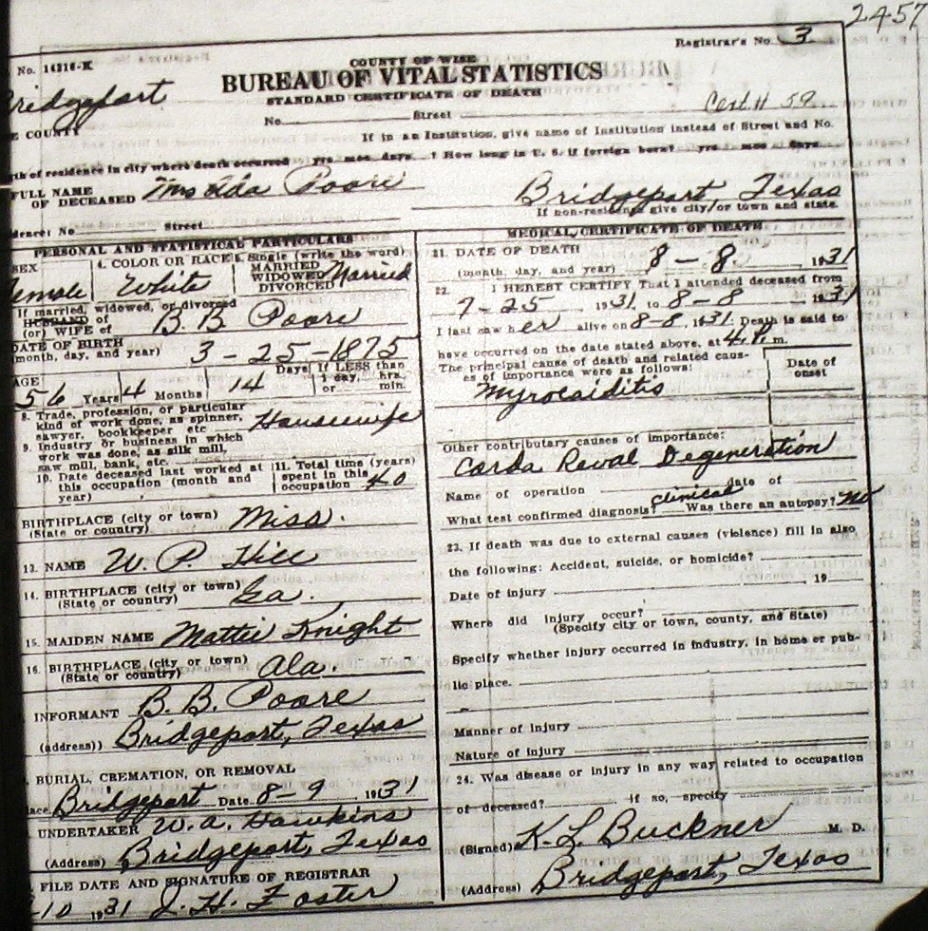 2457
Registrar's No. 3
No. 14316-K
COUNTY OF WISE
BUREAU OF VITAL STATISTICS
STANDARD CERTIFICATE OF DEATH
Bridgeport
E COUNTY
No. Street
Cert # 59
If in an Institution, give name of Institution instead of Street and No.
th of residence in city where death occurred yrs mos days ? How long in U. S. if foreign born? yrs mos days
FULL NAME OF DECEASED Mrs Ada Poore
Bridgeport, Texas
dence: No Street
If non-resident give city or town and state.
PERSONAL AND STATISTICAL PARTICULARS
SEX
emale
4. COLOR OR RACE
White
Single (write the word)
MARRIED
WIDOWED
DIVORCED
Married
If married, widowed, or divorced
HUSBAND of
(or) WIFE of B. B. Poore
DATE OF BIRTH
(month, day, and year) 3-25-1875
AGE
56 Years 4 Months 14 Days
If LESS than
1 day, hrs.
or min.
8. Trade, profession, or particular
kind of work done, as spinner,
sawyer, bookkeeper etc Housewife
9. Industry or business in which
work was done, as silk mill,
saw mill, bank, etc.
10. Date deceased last worked at
this occupation (month and
year)
11. Total time (years)
spent in this
occupation 40
BIRTHPLACE (city or town)
(State or country) Miss.
13. NAME W. P. Hill
14. BIRTHPLACE (city or town)
(State or country) Ga.
15. MAIDEN NAME Mattie Knight
16. BIRTHPLACE (city or town)
(State or country) Ala.
INFORMANT B. B. Poore
(address)) Bridgeport, Texas
BURIAL, CREMATION, OR REMOVAL
ace Bridgeport Date 8-9 1931
UNDERTAKER W. A. Hawkins
(Address) Bridgeport, Texas
FILE DATE AND SIGNATURE OF REGISTRAR
-10 1931 J. H. Foster
MEDICAL CERTIFICATE OF DEATH
21. DATE OF DEATH
(month, day, and year) 8-8. 1931
22. I HEREBY CERTIFY That I attended deceased from
7-25 1931, to 8-8 1931
I last saw her alive on 8-8, 1931. Death is said to
have occurred on the date stated above, at 4. P. m.
The principal cause of death and related caus-
es of importance were as follows:
Date of
onset
Myrocaiditis
Other contributary causes of importance:
Carda Renal Degeneration
Name of operation date of
What test confirmed diagnosis? clinical Was there an autopsy? No
23. If death was due to external causes (violence) fill in also
the following: Accident, suicide, or homicide?
Date of injury , 19
Where did injury occur?
(Specify city or town, county, and State)
Specify whether injury occurred in industry, in home or pub-
lic place.
Manner of injury
Nature of injury
24. Was disease or injury in any way related to occupation
of deceased? if so, specify
(Signed) K. L. Buckner M. D.
(Address) Bridgeport, Texas